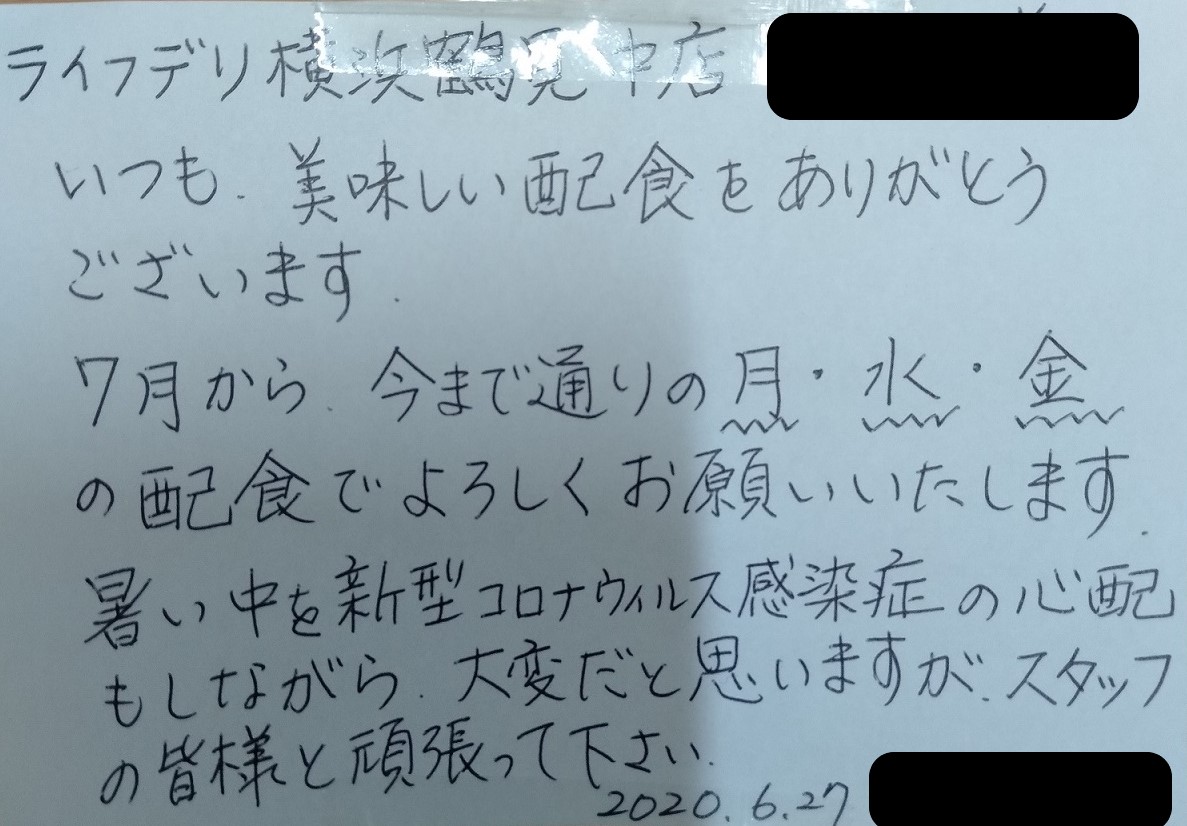 ライフデリ横浜鶴見中店
いつも、美味しい配食をありがとう
ございます.
7月から、今まで通りの月・水・金
の配食でよろしくお願いいたします.
暑い中を新型コロナウィルス感染症の心配
もしながら、大変だと思いますが、スタッフ
の皆様と頑張って下さい.
2020.6.27